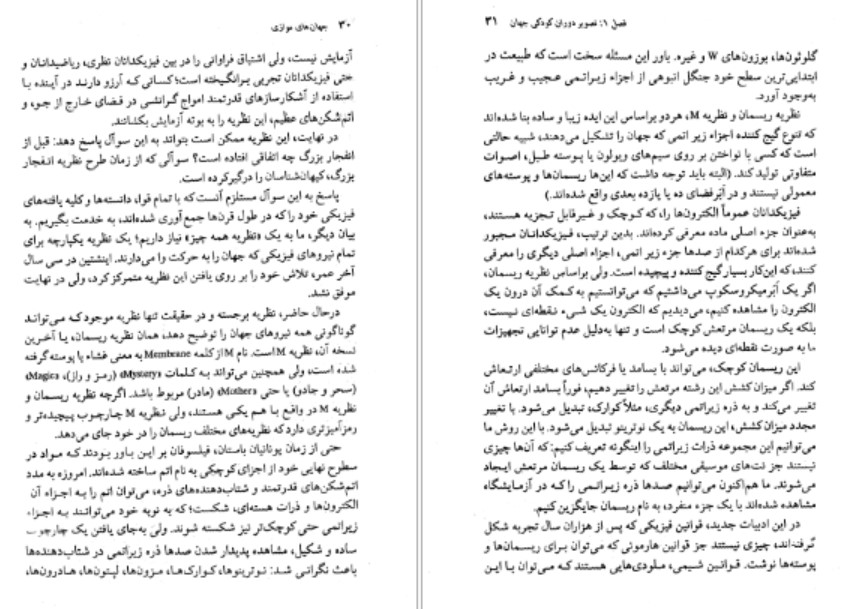 ۳۰ جهان‌های موازی
آزمایش نیست، ولی اشتیاق فراوانی را در بین فیزیکدانان نظری، ریاضیدانان و
حتی فیزیکدانان تجربی برانگیخته است؛ کسانی که آرزو دارند در آینده با
استفاده از آشکارسازهای قدرتمند امواج گرانشی در فضای خارج از جو، و
اتم‌شکن‌های عظیم، این نظریه را به بوته آزمایش بکشانند.
در نهایت، این نظریه ممکن است بتواند به این سوآل پاسخ دهد: قبل از
انفجار بزرگ چه اتفاقی افتاده است؟ سوآلی که از زمان طرح نظریه انفجار
بزرگ، کیهان‌شناسان را درگیر کرده است.
پاسخ به این سوآل مستلزم آنست که با تمام قوا، دانسته‌ها و کلیه یافته‌های
فیزیکی خود را که در طول قرن‌ها جمع‌آوری شده‌اند، به خدمت بگیریم. به
بیان دیگر، ما به یک «نظریه همه چیز» نیاز داریم؛ یک نظریه یکپارچه برای
تمام نیروهای فیزیکی که جهان را به حرکت وا می‌دارند. اینشتین در سی سال
آخر عمر، تلاش خود را بر روی یافتن این نظریه متمرکز کرد، ولی در نهایت
موفق نشد.
درحال حاضر، نظریه برجسته و در حقیقت تنها نظریه موجود که می‌تواند
گوناگونی همه نیروهای جهان را توضیح دهد، همان نظریه ریسمان، یا آخرین
نسخه آن، نظریه M است. نام M از کلمه Membrane به معنی غشاء یا پوسته گرفته
شده است، ولی همچنین می‌تواند به کلمات «Mystery» (رمز و راز)، «Magic»
(سحر و جادو) یا حتی «Mother» (مادر) مربوط باشد. اگرچه نظریه ریسمان و
نظریه M در واقع با هم یکی هستند، ولی نظریه M چارچوب پیچیده‌تر و
رمزآمیزتری دارد که نظریه‌های مختلف ریسمان را در خود جای می‌دهد.
حتی از زمان یونانیان باستان، فیلسوفان بر این باور بودند که مواد در
سطوح نهایی خود از اجزای کوچکی به نام اتم ساخته شده‌اند. امروزه به مدد
اتم‌شکن‌های قدرتمند و شتاب‌دهنده‌های ذره، می‌توان اتم را به اجزاء آن
الکترون‌ها و ذرات هسته‌ای، شکست؛ که به نوبه خود می‌توانند به اجزاء
زیراتمی حتی کوچک‌تر نیز شکسته شوند. ولی به‌جای یافتن یک چارچوب
ساده و شکیل، مشاهده پدیدار شدن صدها ذره زیراتمی در شتاب‌دهنده‌ها
باعث نگرانی شد: نوترینوها، کوارک‌ها، مزون‌ها، لپتون‌ها، هادرون‌ها،
فصل ۱: تصویر دوران کودکی جهان ۳۱
گلوئون‌ها، بوزون‌های W و غیره. باور این مسئله سخت است که طبیعت در
ابتدایی‌ترین سطح خود جنگل انبوهی از اجزاء زیراتمی عجیب و غریب
به‌وجود آورد.
نظریه ریسمان و نظریه M، هر دو براساس این ایده زیبا و ساده بنا شده‌اند
که تنوع گیج کننده اجزاء زیر اتمی که جهان را تشکیل می‌دهند، شبیه حالتی
است که کسی با نواختن بر روی سیم‌های ویولون یا پوسته طبل، اصوات
متفاوتی تولید کند. (البته باید توجه داشت که این‌ها ریسمان‌ها و پوسته‌های
معمولی نیستند و در اَبَرفضای ده یا یازده بعدی واقع شده‌اند.)
فیزیکدانان عموماً الکترون‌ها را، که کوچک و غیرقابل تجزیه هستند،
به‌عنوان جزء اصلی ماده معرفی کرده‌اند. بدین ترتیب، فیزیکدانان مجبور
شده‌اند برای هرکدام از صدها جزء زیر اتمی، اجزاء اصلی دیگری را معرفی
کنند، که این‌کار بسیار گیج کننده و پیچیده است. ولی براساس نظریه ریسمان،
اگر یک اَبَرمیکروسکوپ می‌داشتیم که می‌توانستیم به‌کمک آن درون یک
الکترون را مشاهده کنیم، می‌دیدیم که الکترون یک شیء نقطه‌ای نیست،
بلکه یک ریسمان مرتعش کوچک است و تنها به‌دلیل عدم توانایی تجهیزات
ما به صورت نقطه‌ای دیده می‌شود.
این ریسمان کوچک، می‌تواند با بسامد یا فرکانس‌های مختلفی ارتعاش
کند. اگر میزان کشش این رشته مرتعش را تغییر دهیم، فوراً بسامد ارتعاش آن
تغییر می‌کند و به ذره زیراتمی دیگری، مثلاً کوارک، تبدیل می‌شود. با تغییر
مجدد میزان کشش، این ریسمان به یک نوترینو تبدیل می‌شود. با این روش ما
می‌توانیم این مجموعه ذرات زیراتمی را اینگونه تعریف کنیم: که آن‌ها چیزی
نیستند جز نت‌های موسیقی مختلف که توسط یک ریسمان مرتعش ایجاد
می‌شوند. ما هم‌اکنون می‌توانیم صدها ذره زیراتمی را که در آزمایشگاه
مشاهده شده‌اند با یک جزء منفرد، به نام ریسمان جایگزین کنیم.
در این ادبیات جدید، قوانین فیزیکی که پس از هزاران سال تجربه شکل
گرفته‌اند، چیزی نیستند جز قوانین هارمونی که می‌توان برای ریسمان‌ها و
پوسته‌ها نوشت. قوانین شیمی، ملودی‌هایی هستند که می‌توان با این